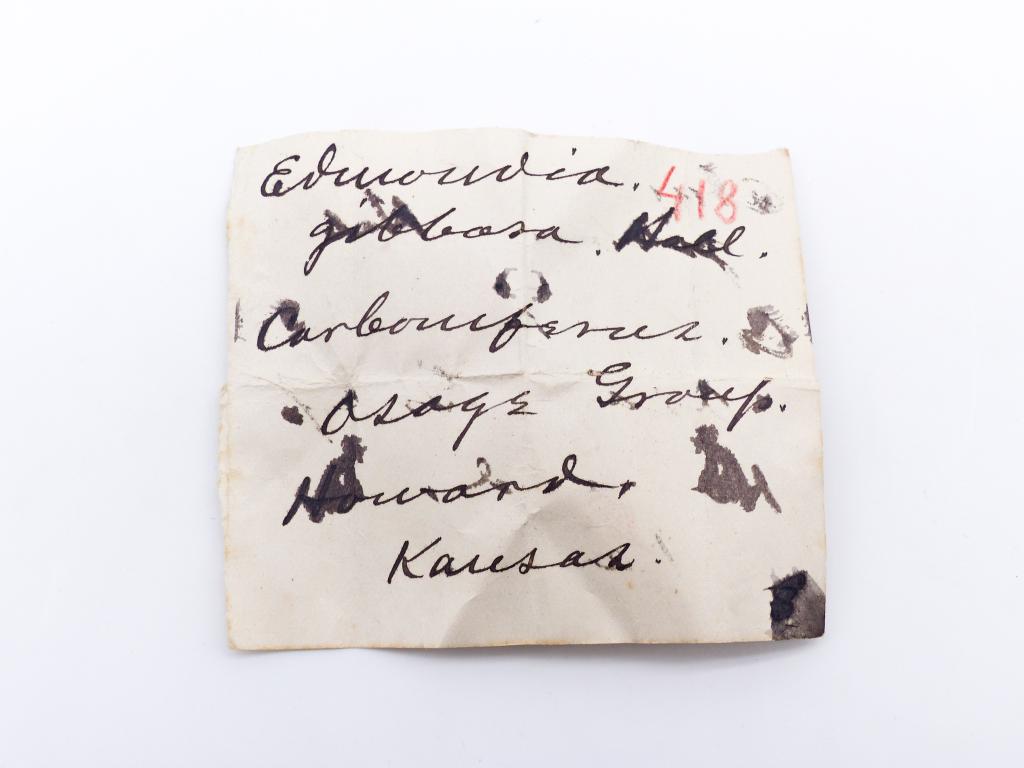 Edmondia. 418
gibbosa. Hall.
Carboniferus.
Osage Group.
Howard,
Kansas.